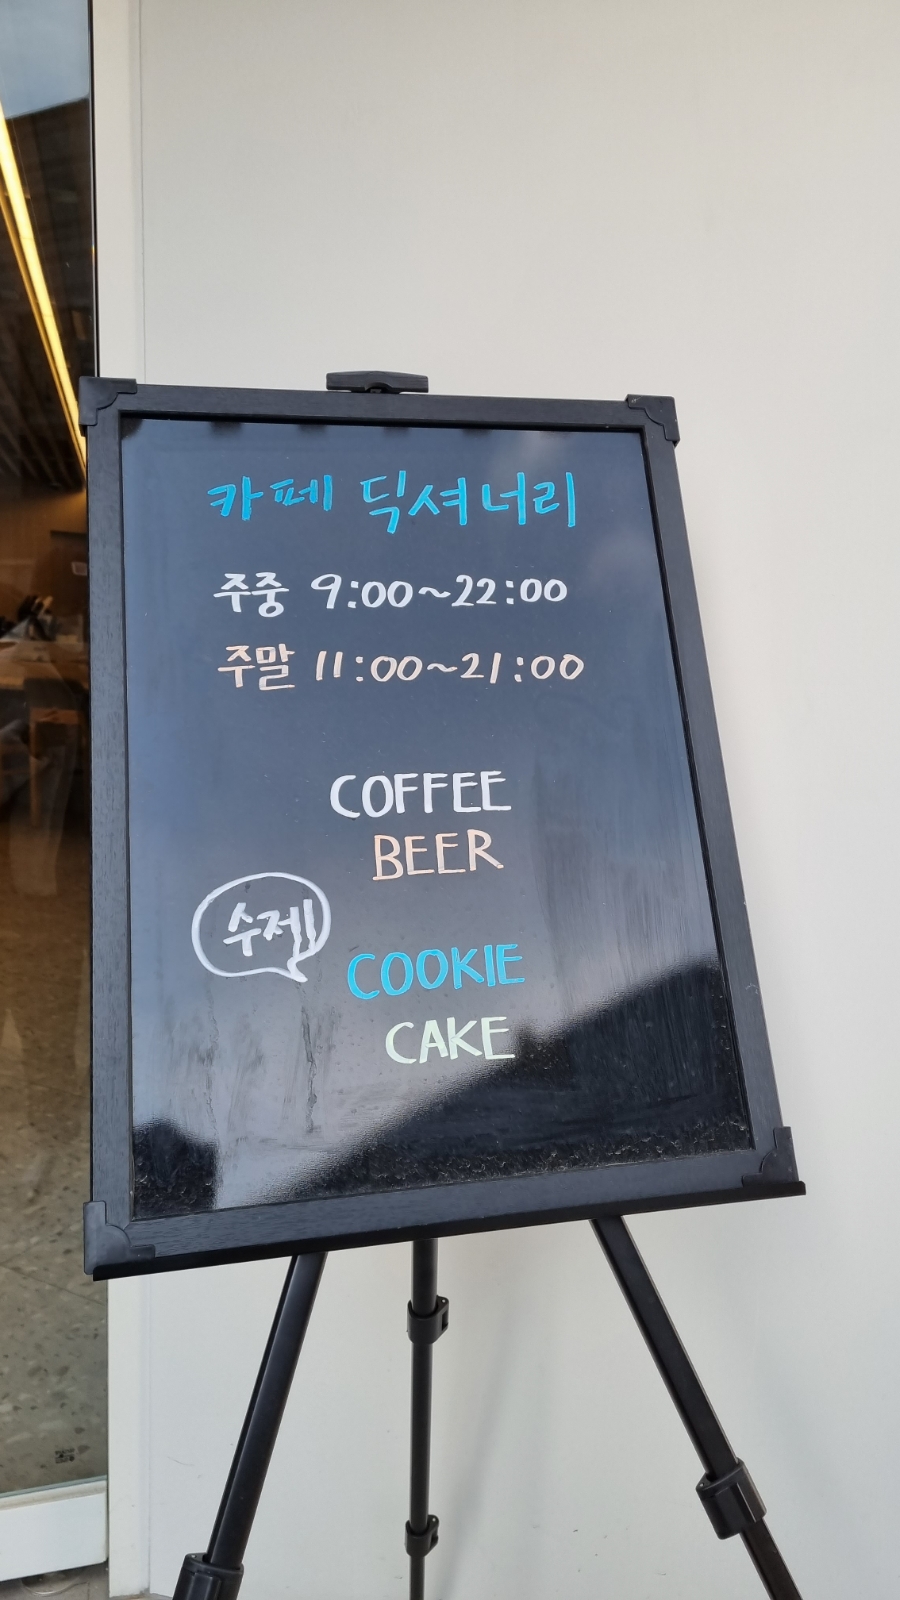 카페 딕셔너리
주중 9:00~22:00
주말 11:00~21:00
COFFEE
BEER
수제!!
COOKIE
CAKE